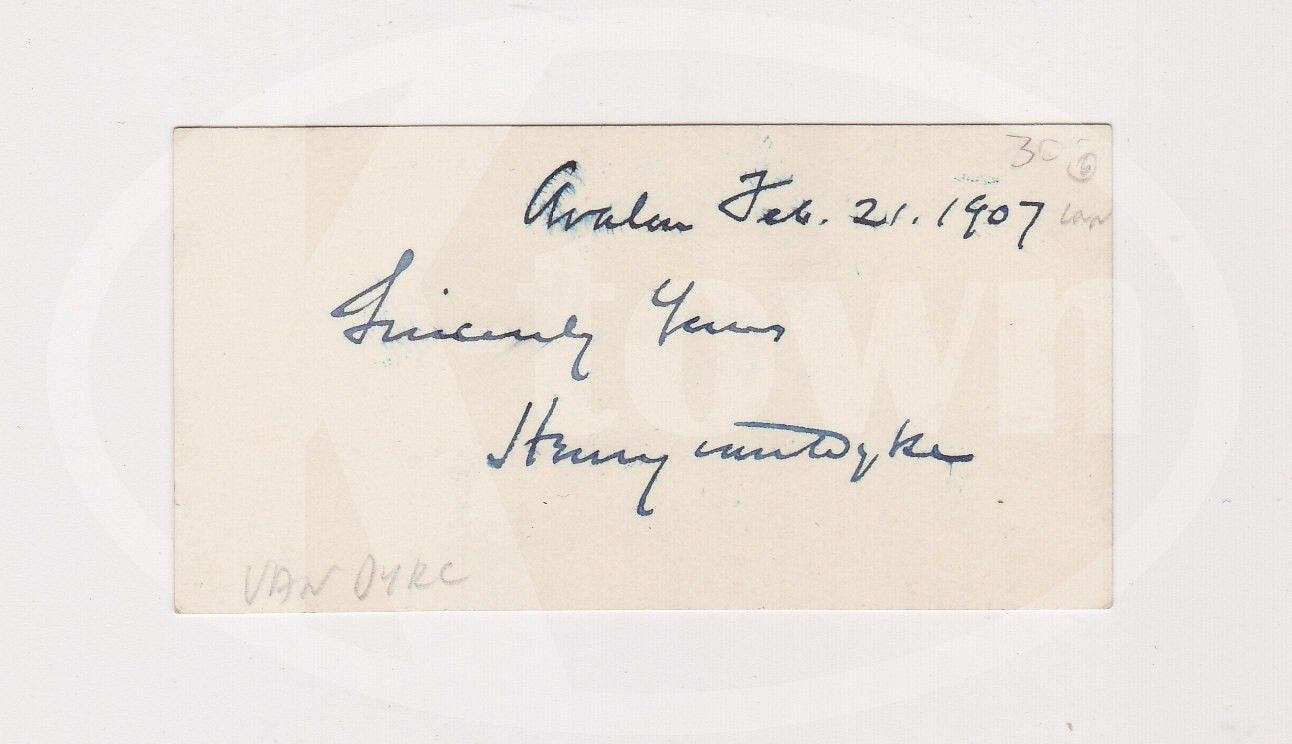 30
Avalon Feb. 21. 1907
Sincerely Yours
Henry van Dyke
VAN DYKE
K town